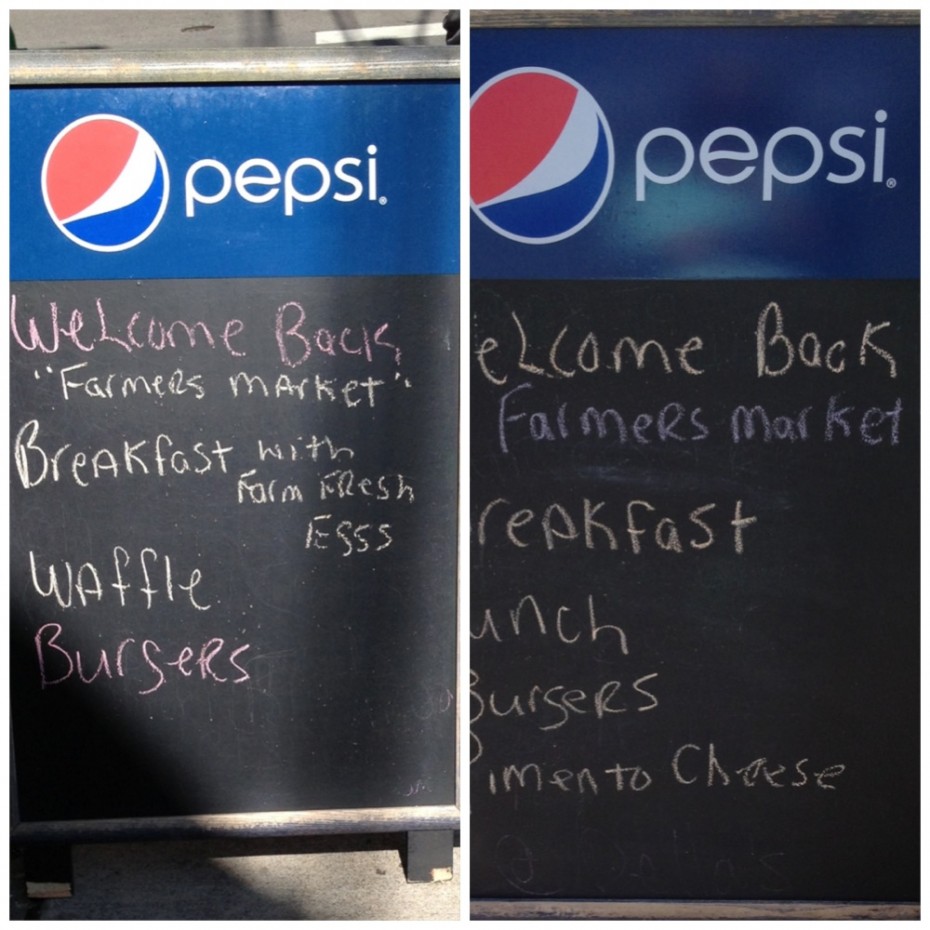 pepsi
WeLcome Back
"Farmers market"
Breakfast with
Farm Fresh
Eggs
Waffle
Burgers
pepsi
eLcome Back
Farmers market
reakfast
unch
Burgers
Pimento Cheese